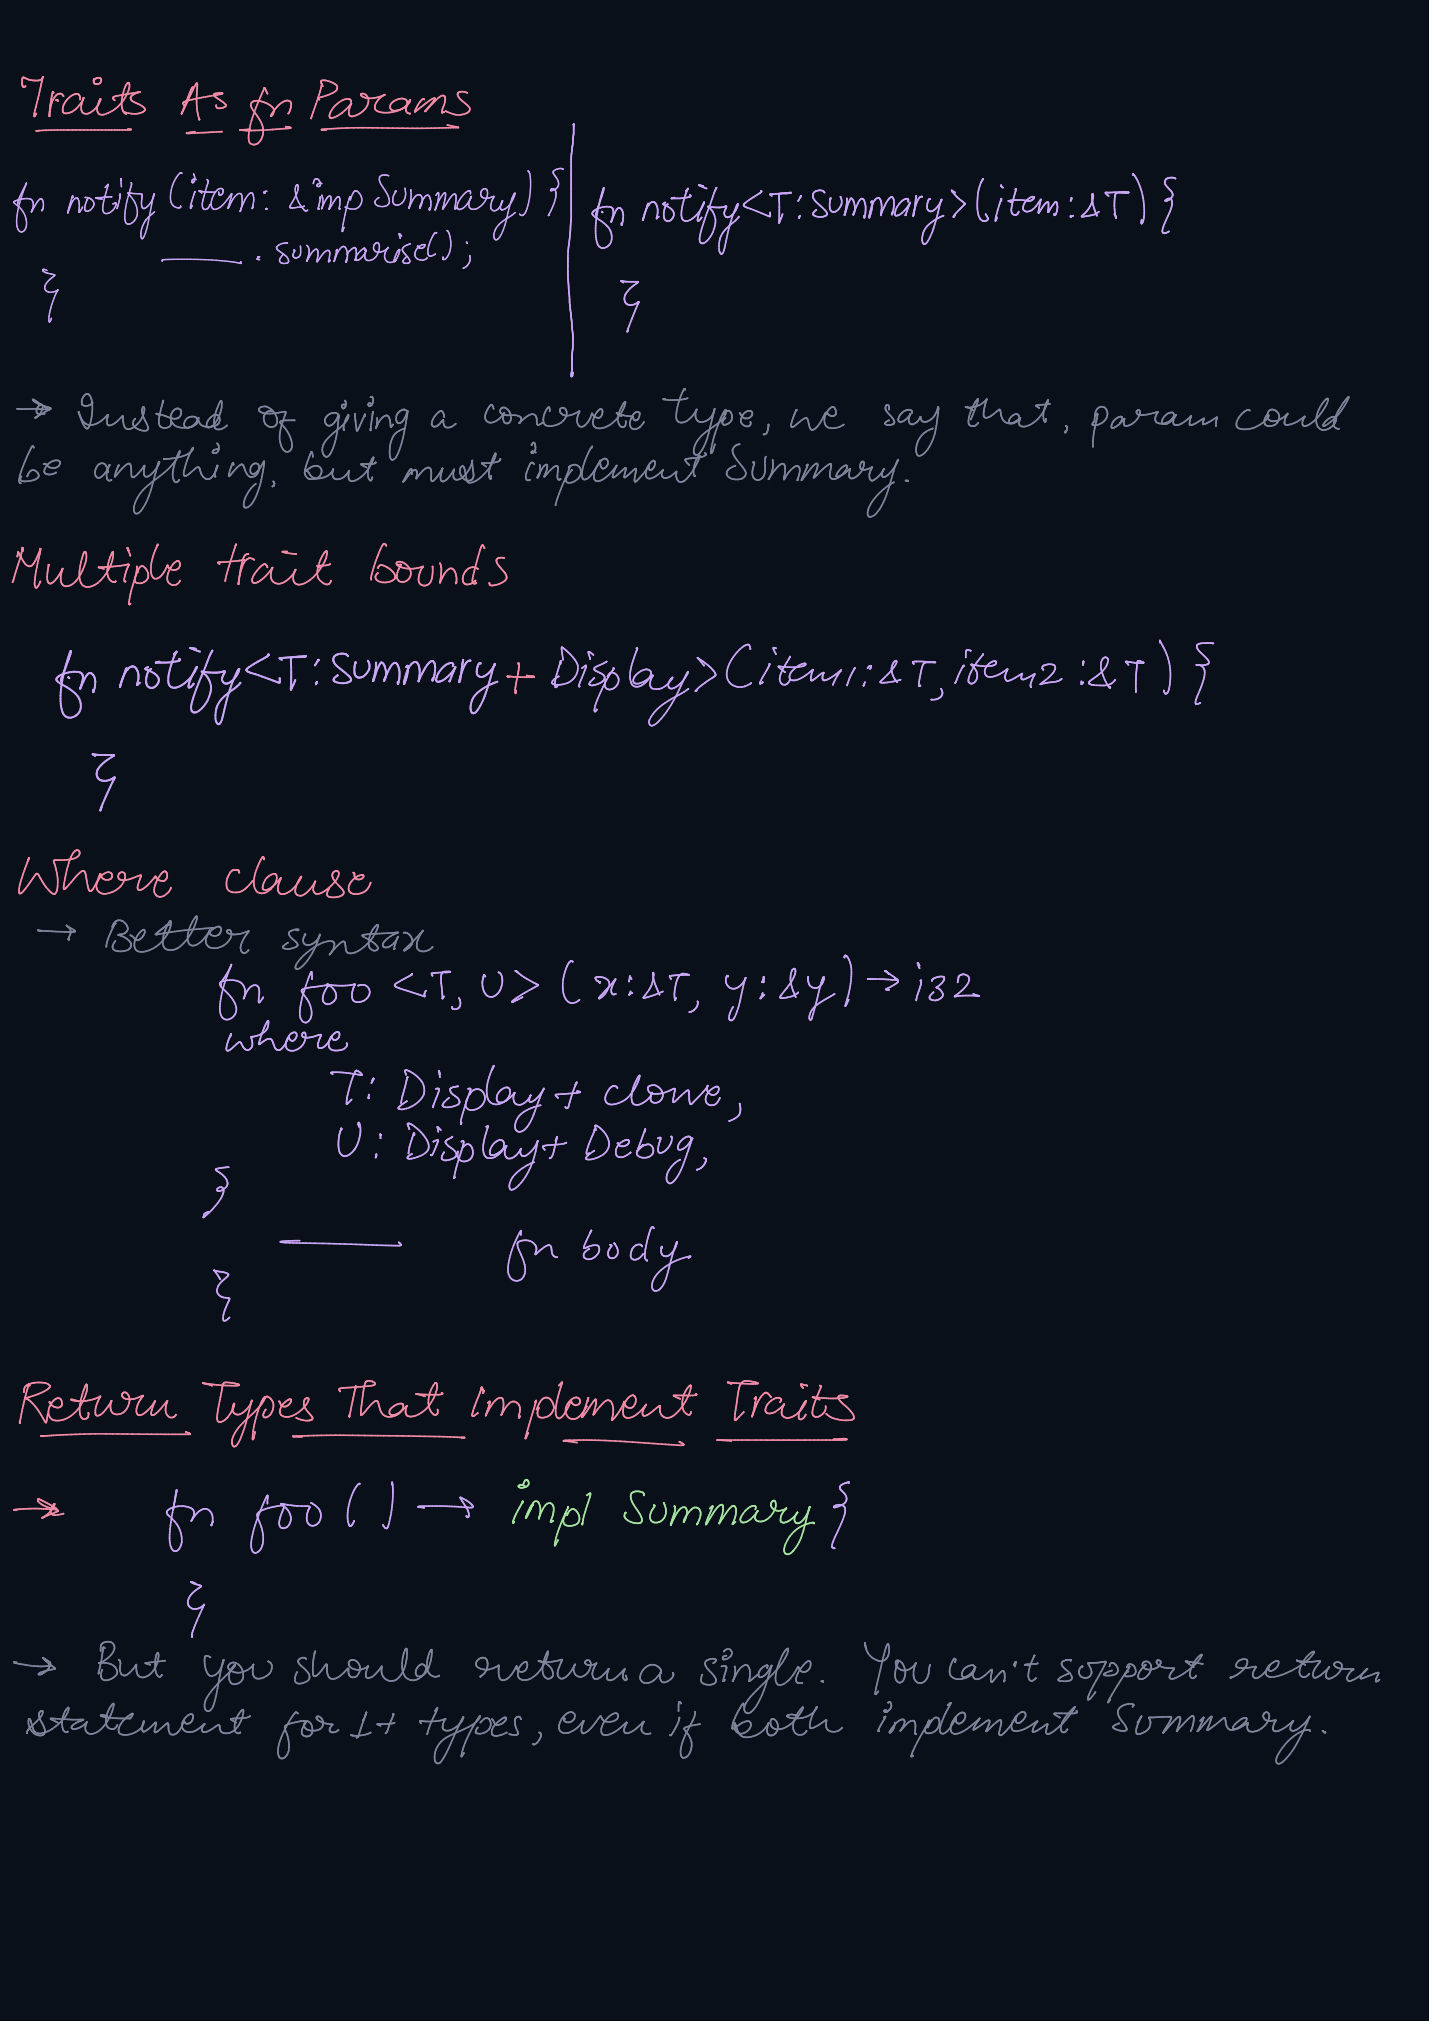 Traits As fn Params
fn notify (item: &imp Summary) {
____ . summarise();
}
fn notify<T: Summary>(item: &T) {
}
→ Instead of giving a concrete type, we say that, param could
be anything, but must implement Summary.
Multiple trait bounds
fn notify<T: Summary + Display>(item1: &T, item2: &T) {
}
Where clause
→ Better syntax
fn foo <T, U> (x: &T, y: &y) → i32
where
T: Display + clone,
U: Display + Debug,
{
____ fn body
}
Return Types That Implement Traits
→ fn foo () → impl Summary {
}
→ But you should return a single. You can't support return
statement for 1+ types, even if both implement Summary.